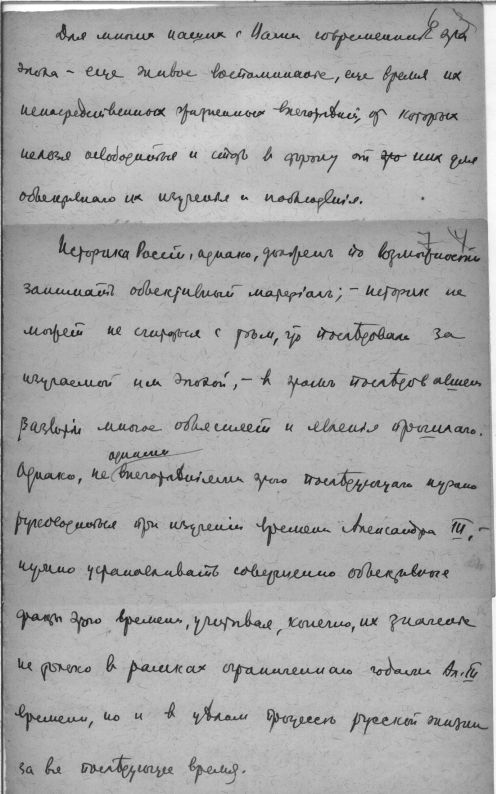 Для многих наших с Вами современников эта
эпоха – еще живое воспоминание, еще время их
непосредственных жизненных впечатлѣний, от которых
нельзя освободиться и стать в сторону от них для
объективнаго их изучения и наблюдения.
7 4
Историк Россіи, однако, должен по возможности
занимать объективный матеріалъ; – историк не
может не считаться с тѣм, что послѣдовало за
изучаемой им эпохой, – в этом послѣдовавшем
развитіи многое объясняет и явления прошлаго.
Однако, не одними впечатлѣниями этого послѣдующаго нужно
руководиться при изученіи времени Александра III, –
нужно устанавливать совершенно объективные
факты этого времени, учитывая, конечно, их значение
не только в рамках ограниченнаго годами Ал. III
времени, но и в цѣлом процессѣ русской жизни
за все послѣдующее время.